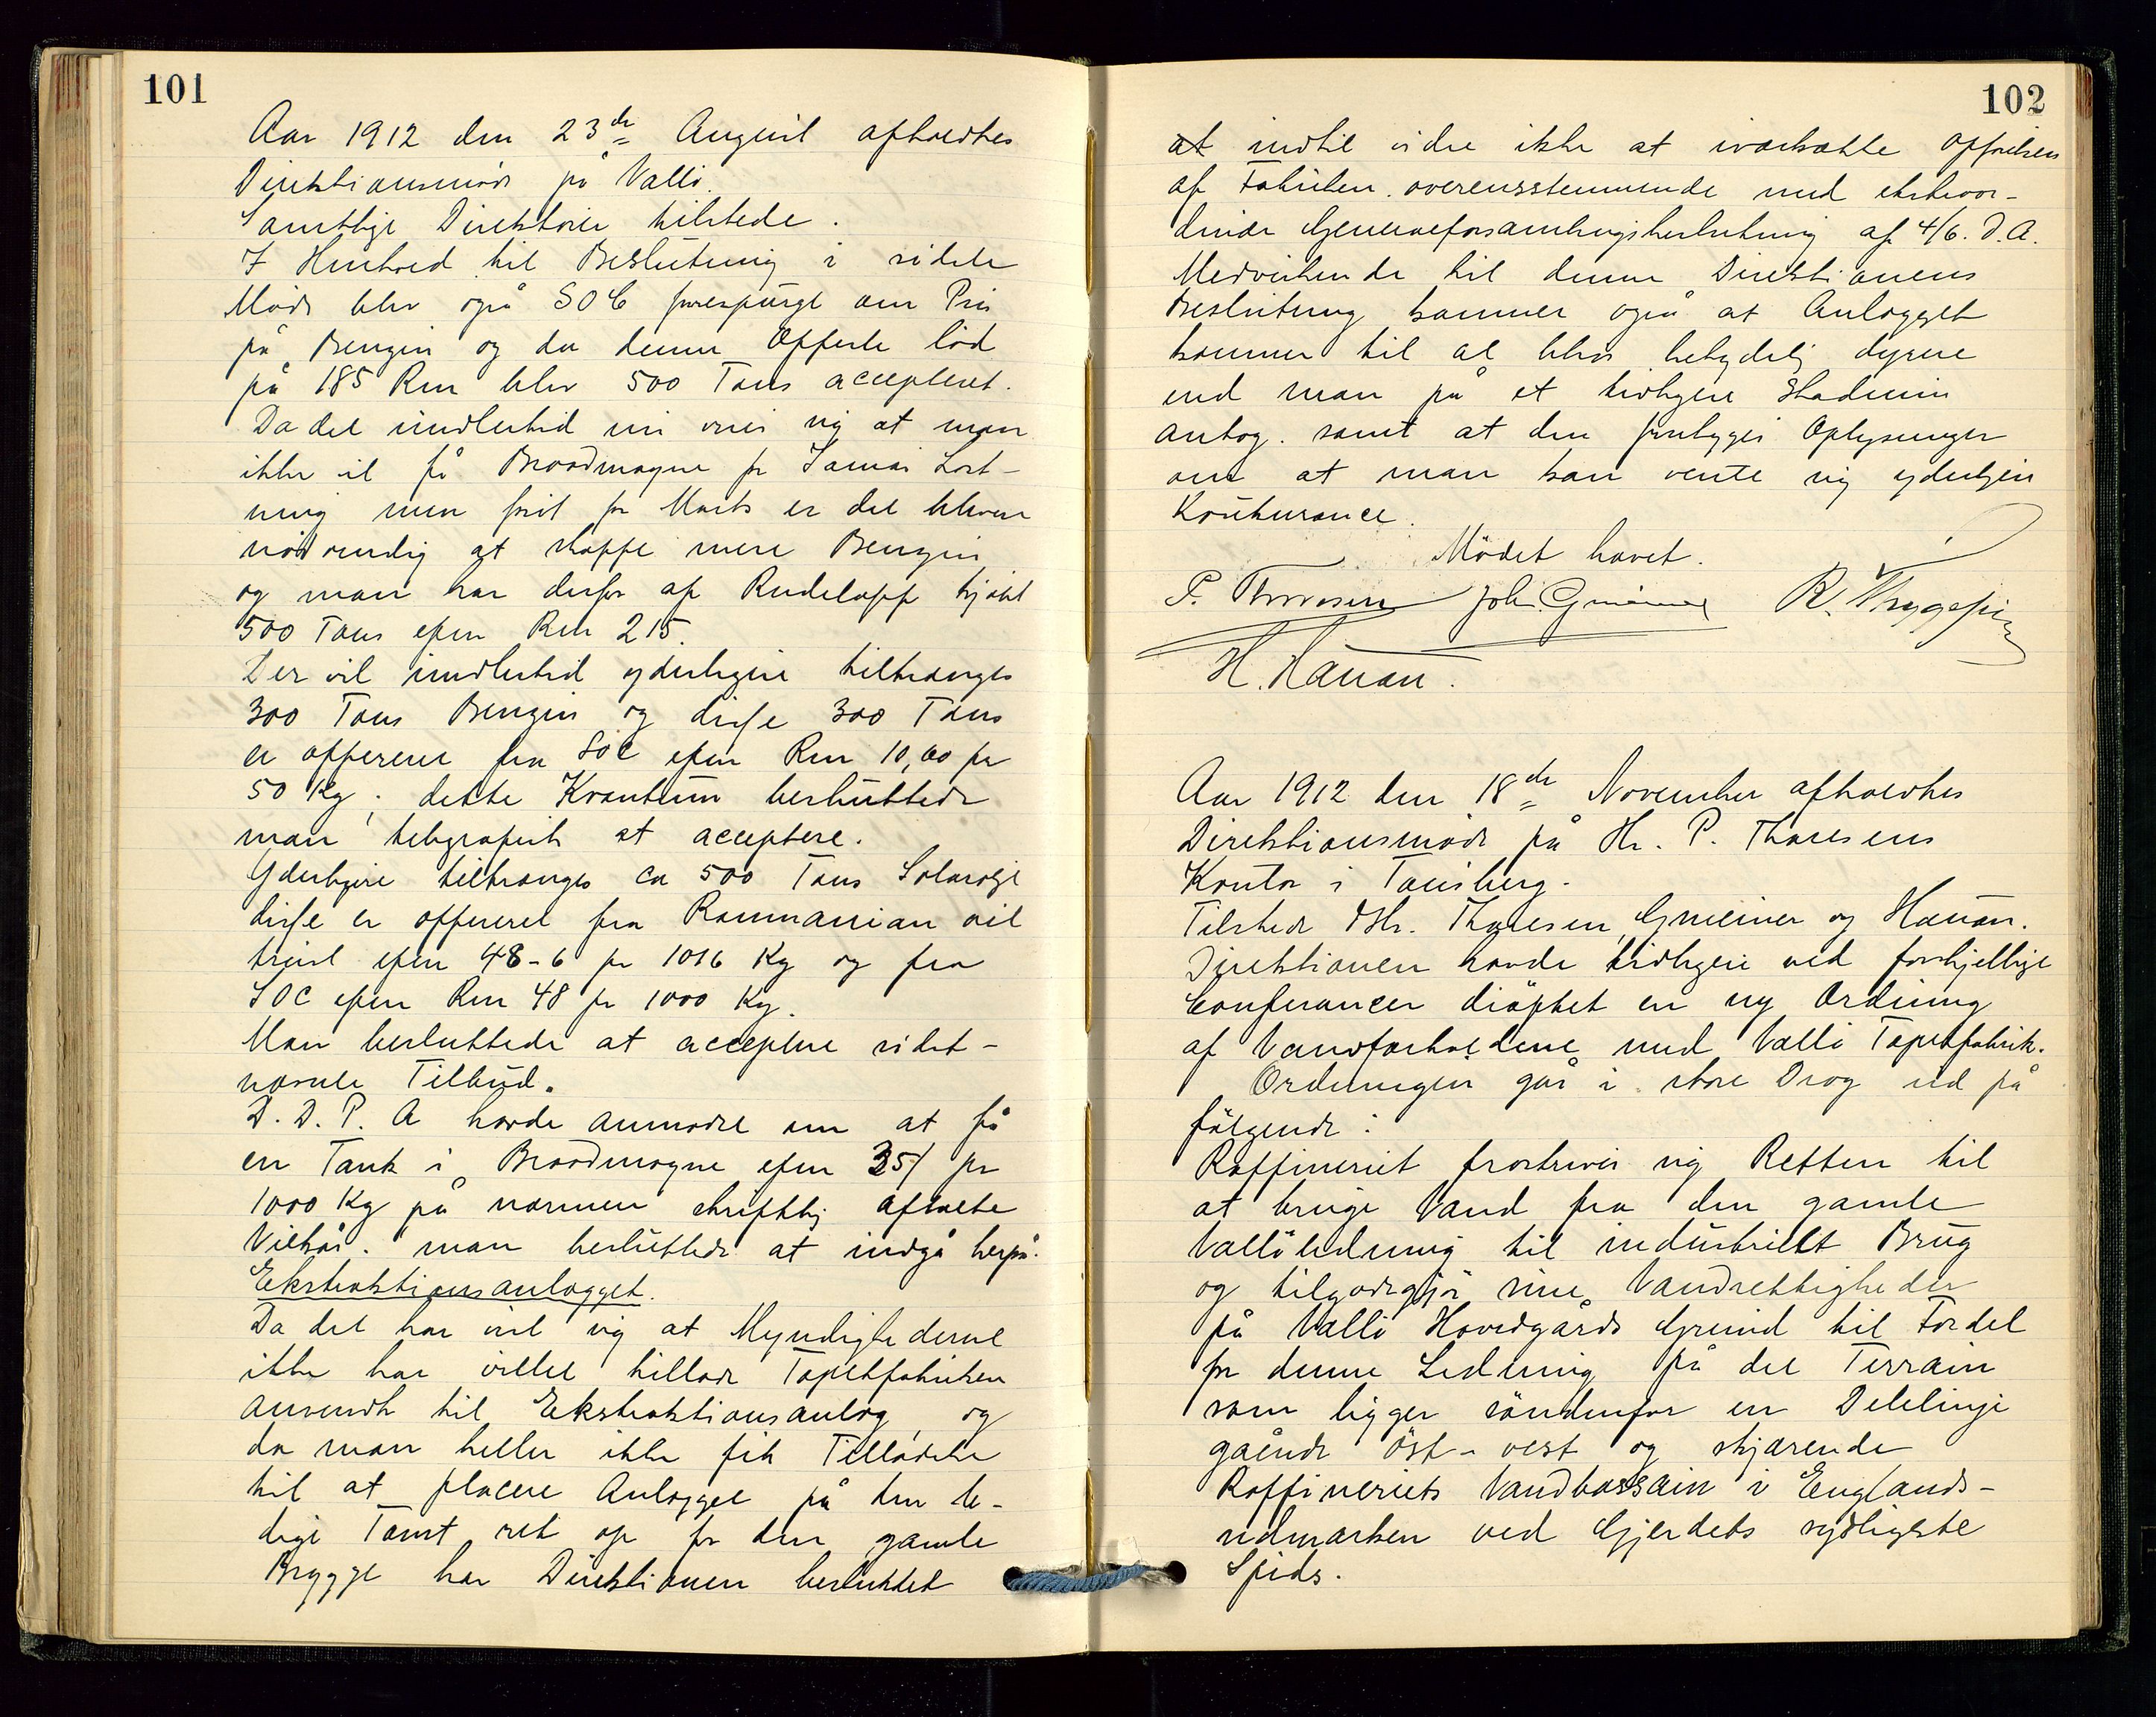 101
Aar 1912 den 23de August afholdtes
Direktionsmöde på Vallö.
Samtlige Direktörer tilstede.
I Henhold til Beslutning i sidste
Möde blev også SOC forespurgt om Pris
på Benzin og da denne Offerte löd
på 185 Rm blev 500 Tons accepteret.
Da det imidlertid nu viser sig at man
ikke vil få Broadmayne pr Januar Lost-
ning men först pr Marts er det bleven
nödvendig at skaffe mere Benzin
og man har derfor af Rudeloff kjöbt
500 Tons efter Rm 215.
Der vil imidlertid yderligere tiltrænges
300 Tons Benzin og disse 300 Tons
er offereret fra SOC efter Rm 10,60 pr
50 Kg; dette Kvantum besluttede
man telegrafisk at acceptere.
Yderligere tiltrænges ca 500 Tons Solarolje
disse er offereret fra Roumanian oil
trust efter 48-6 pr 1016 Kg og fra
SOC efter Rm 48 pr 1000 Kg.
Man besluttede at acceptere sidst-
nævnte Tilbud.
D. D. P. A havde anmodet om at få
en Tank i Broadmayne efter 35/ pr
1000 Kg på nærmere skriftlig aftalte
Vilkår. man besluttede at indgå herpå.
Ekstraktionsanlægget.
Da det har vist sig at Myndighederne
ikke har villet tillade Tapetfabriken
anvendt til Ekstraktionsanlæg og
da man heller ikke fik Tilladelse
til at placere Anlægget på den le-
dige Tomt ret op for den gamle
Brygge har Direktionen besluttet
102
at indtil videre ikke at iværksætte opförelsen
af Fabriken overensstemmende med ekstraor-
dinær Generalforsamlingsbeslutning af 4/6. D.A.
Medvirkende til denne Direktionens
Beslutning kommer også at Anlægget
kommer til at blive betydelig dyrere
end man på et tidligere Stadium
antog. samt at der foreligger Oplysninger
om at man kan vente sig yderligere
Konkurance.
Mödet hævet.
P. Thoresen Joh. Gmeiner R. Thygesen
H. Hauan.
Aar 1912 den 18de November afholdtes
Direktionsmöde på Hr. P. Thoresens
Kontor i Tönsberg.
Tilstede Hr. Thoresen, Gmeiner og Hauan.
Direktionen havde tidligere ved forskjellige
Conferancer dröftet en ny Ordning
af Vandforholdene med Vallö Tapetfabrik.
Ordningen går i store Drag ud på
fölgende:
Raffineriet fraskriver sig Retten til
at bruge Vand fra den gamle
Vallöledning til industrielt Brug
og tilgodegjör sine Vandrettigheder
på Vallö Hovedgårds Grund til Fordel
for denne Ledning på det Terrain
som ligger söndenfor en Delelinje
gående öst-vest og skjærende
Raffineriets Vandbassain i Englands-
udmarken ved Gjerdets sydligste
Spids.